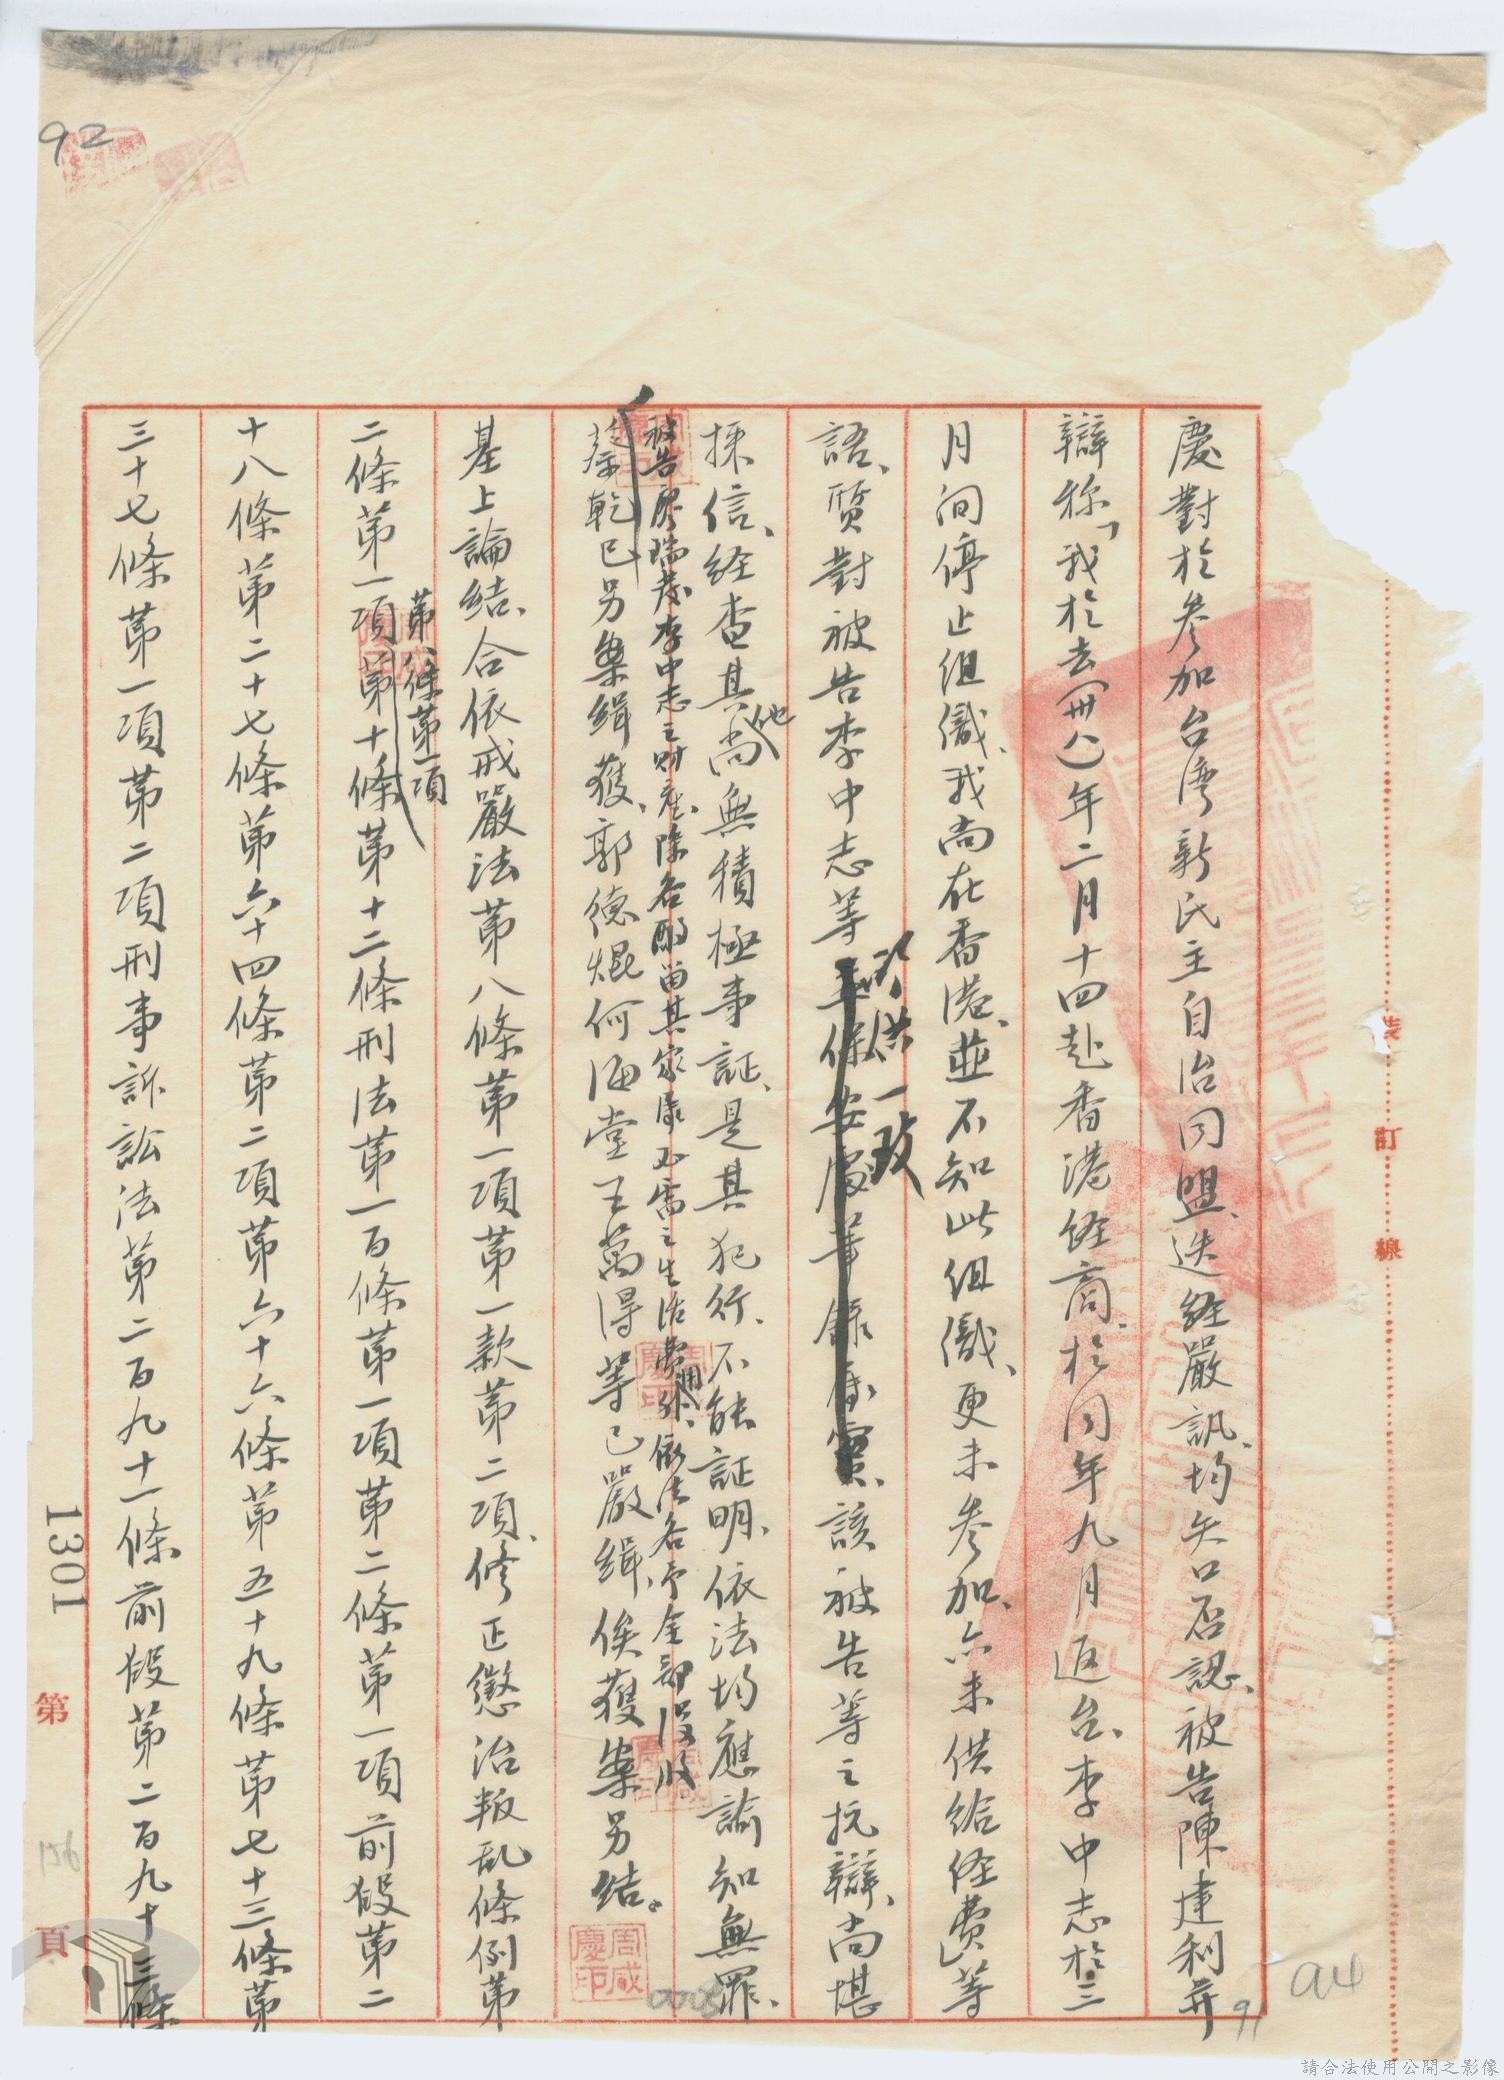 慶對於參加台灣新民主自治同盟、迭經嚴訊、均矢口否認、被告陳建利并
辯称「我於去(卅八)年二月十四赴香港経商、於同年九月返台、李中志於三
月间停止组織、我尚在香港、並不知此组織、更未參加、亦未供給経費」等
語、质對被告李中志等所供一致、該被告等之抗辯、尚堪
採信、経查其他尚無積極事証、是其犯行、不能証明、依法均應諭知無罪、
被告廖瑞發李中志之財產、除各酌留其家屬必需之生活費用外、依法各予全部沒收、
蔡乾已另案緝獲、郭德焜何海堂王萬得等已嚴緝、俟獲案另結。
基上論結、合依戒嚴法第八條第一項第一款第二項、修正懲治叛乱條例第
二條第一項第十條第十二條刑法第一百條第一項第二條第一項前段第二
第八條第一項
十八條第二十七條第六十四條第二項第六十六條第五十九條第七十三條第
三十七條第一項第二項刑事訴訟法第二百九十一條前段第二百九十三條
周咸慶印
裝
訂
線
第
頁
1301
92
94
91
156
請合法使用公開之影像